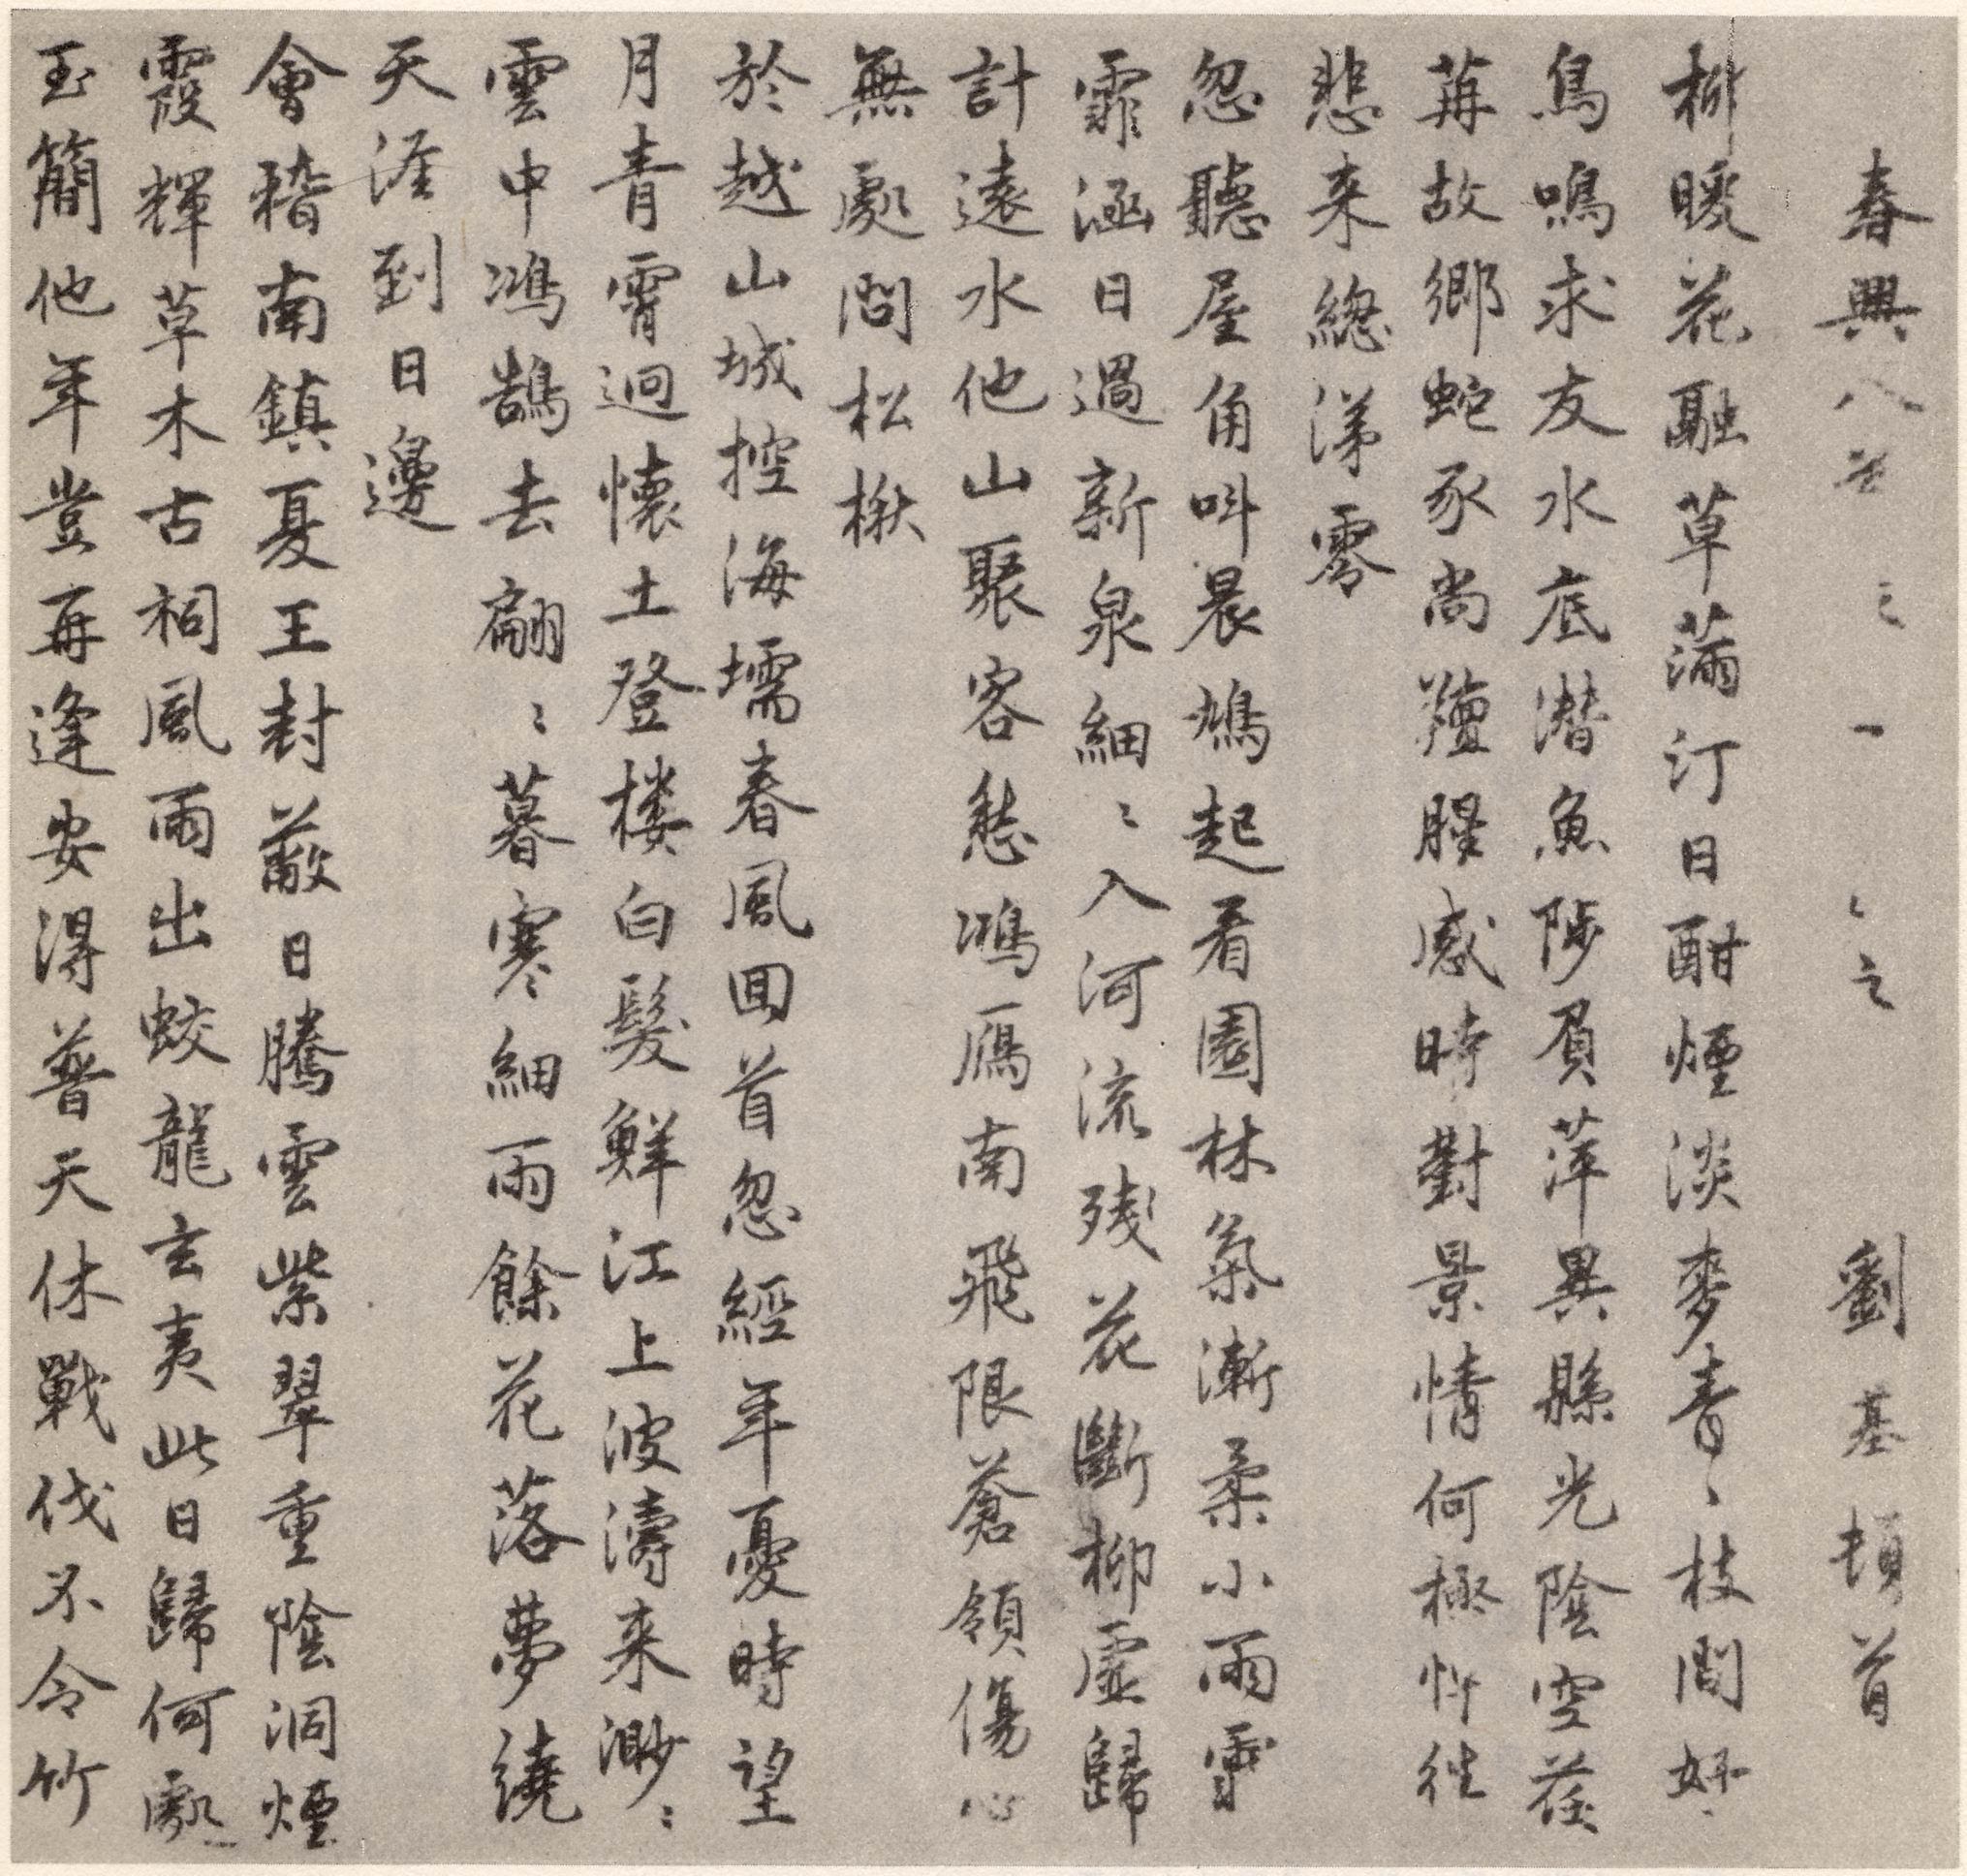 春興八首 劉基頓首
柳暖花融草滿汀日酣煙淡麥青〻枝間好
鳥鳴求友水底潛魚陟負萍異縣光陰空荏
苒故鄉蛇豕尚羶腥感時對景情何極忤往
悲来總涕零
忽聽屋角叫晨鳩起看園林氣漸柔小雨霏
霏涵日過新泉細〻入河流殘花斷柳虛歸
計遠水他山聚客愁鴻雁南飛限蒼領傷心
無處問松楸
於越山城控海壖春風回首忽經年憂時望
月青霄迥懷土登楼白髮鮮江上波濤来渺〻
雲中鴻鵠去翩〻暮寒細雨餘花落夢繞
天涯到日邊
會稽南鎮夏王封蔽日騰雲紫翠重陰洞煙
霞輝草木古祠風雨出蛟龍玄夷此日歸何處
玉簡他年豈再逢安得普天休戰伐不令竹